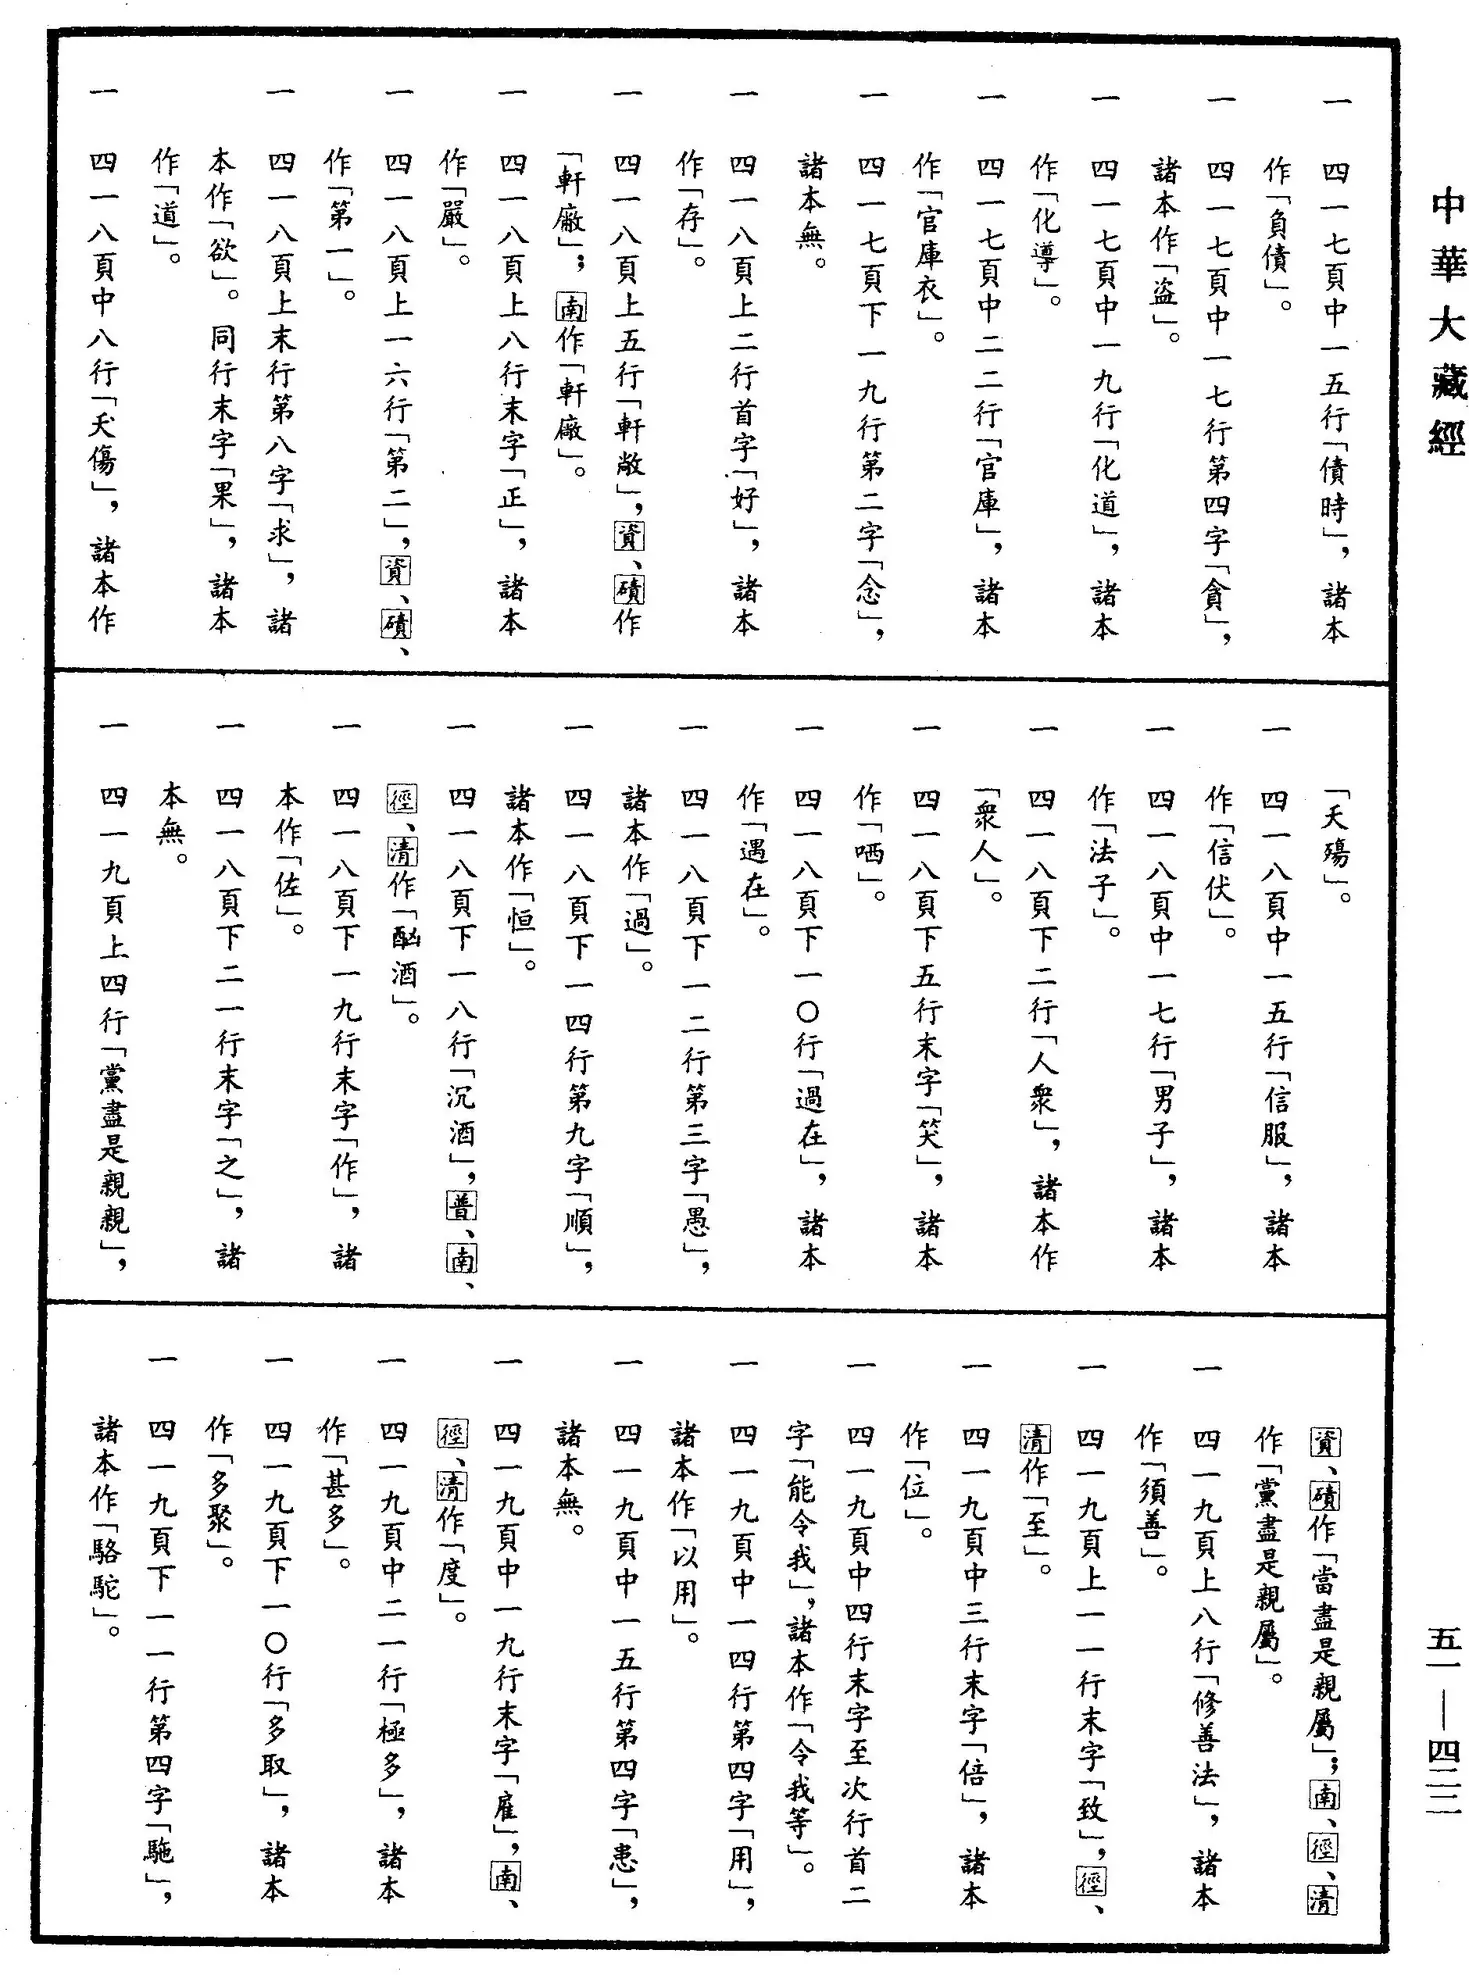 中華大藏經
一　四一七頁中一五行「債時」，諸本
作「負債」。
一　四一七頁中一七行第四字「貪」，
諸本作「盜」。
一　四一七頁中一九行「化道」，諸本
作「化導」。
一　四一七頁中二二行「官庫」，諸本
作「官庫衣」。
一　四一七頁下一九行第二字「念」，
諸本無。
一　四一八頁上二行首字「好」，諸本
作「存」。
一　四一八頁上五行「軒敞」，資、磧作
「軒廠」；南作「軒廠」。
一　四一八頁上八行末字「正」，諸本
作「嚴」。
一　四一八頁上一六行「第二」，資、磧、
作「第一」。
一　四一八頁上末行第八字「求」，諸
本作「欲」。同行末字「果」，諸本
作「道」。
一　四一八頁中八行「夭傷」，諸本作
「夭殤」。
一　四一八頁中一五行「信服」，諸本
作「信伏」。
一　四一八頁中一七行「男子」，諸本
作「法子」。
一　四一八頁下二行「人衆」，諸本作
「衆人」。
一　四一八頁下五行末字「笑」，諸本
作「哂」。
一　四一八頁下一〇行「過在」，諸本
作「遇在」。
一　四一八頁下一二行第三字「愚」，
諸本作「過」。
一　四一八頁下一四行第九字「順」，
諸本作「恒」。
一　四一八頁下一八行「沉酒」，普、南、
徑、清作「酗酒」。
一　四一八頁下一九行末字「作」，諸
本作「佐」。
一　四一八頁下二一行末字「之」，諸
本無。
一　四一九頁上四行「黨盡是親親」，
資、磧作「當盡是親屬」；南、徑、清
作「黨盡是親屬」。
一　四一九頁上八行「修善法」，諸本
作「須善」。
一　四一九頁上一一行末字「致」，徑、
清作「至」。
一　四一九頁中三行末字「倍」，諸本
作「位」。
一　四一九頁中四行末字至次行首二
字「能令我」，諸本作「令我等」。
一　四一九頁中一四行第四字「用」，
諸本作「以用」。
一　四一九頁中一五行第四字「患」，
諸本無。
一　四一九頁中一九行末字「雇」，南、
徑、清作「度」。
一　四一九頁中二一行「極多」，諸本
作「甚多」。
一　四一九頁下一〇行「多取」，諸本
作「多聚」。
一　四一九頁下一一行第四字「駞」，
諸本作「駱駝」。
五一—四二二